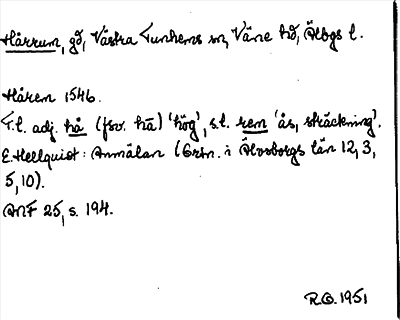 Hårrum, gd, Västra Tunhems sn, Väne hd, Älvbgs l.
Hårem 1546.
F.l. adj. hå (fsv. hā) 'hög', s.l. rem 'ås, sträckning'.
E. Hellquist: Anmälan (Ortn. i Älvsborgs län 12, 3,
5, 10).
ANF 25, s. 194.
R.O. 1951